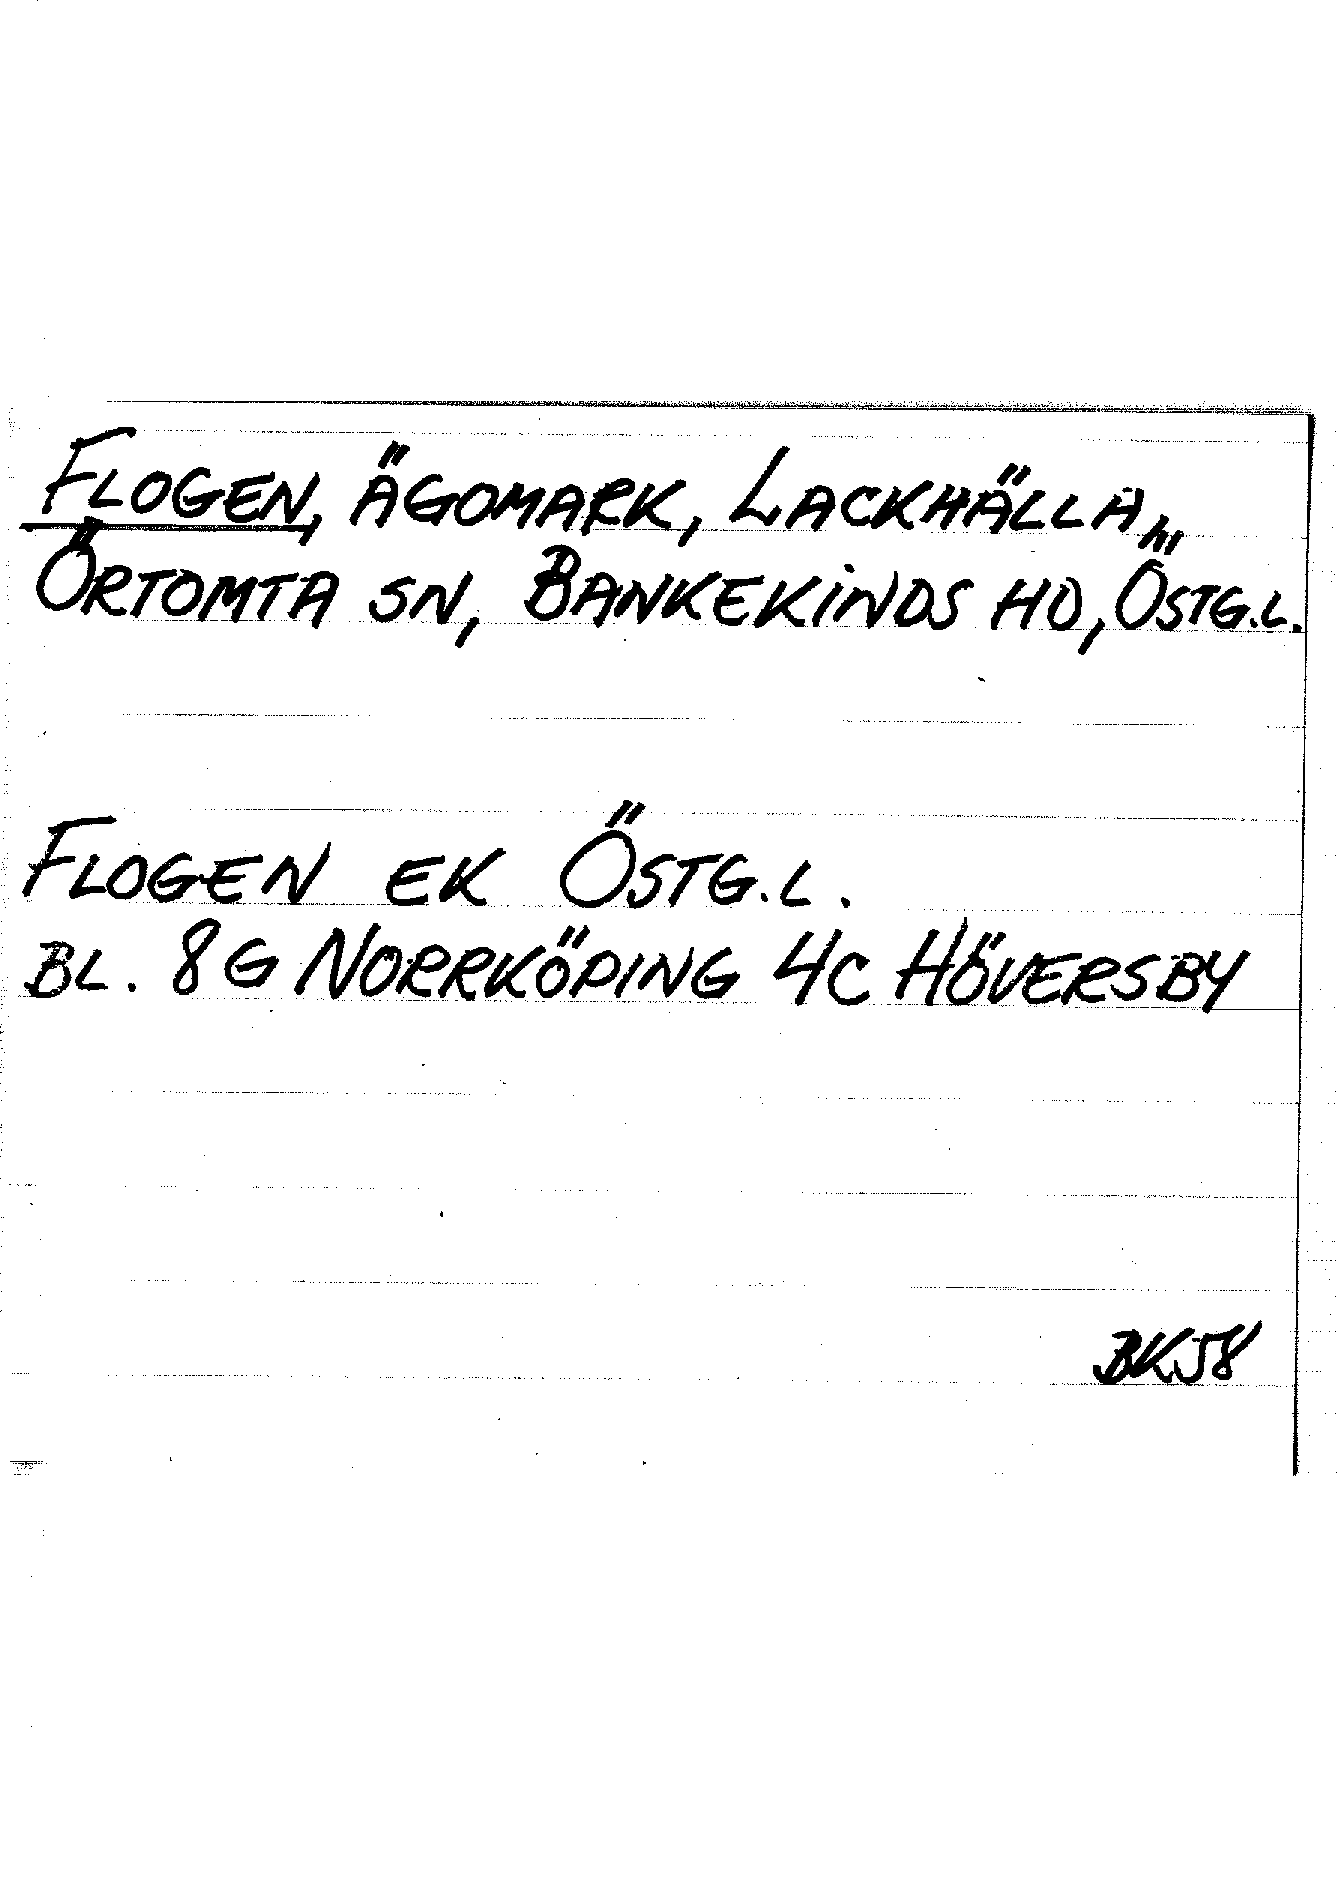 FLOGEN, ÄGOMARK, LACKHÄLLA,
ÖRTOMTA SN, BANKEKINDS HD, ÖSTG.L.
FLOGEN EK ÖSTG.L.
BL. 8G NORRKÖPING 4C HÖVERSBY
BK58